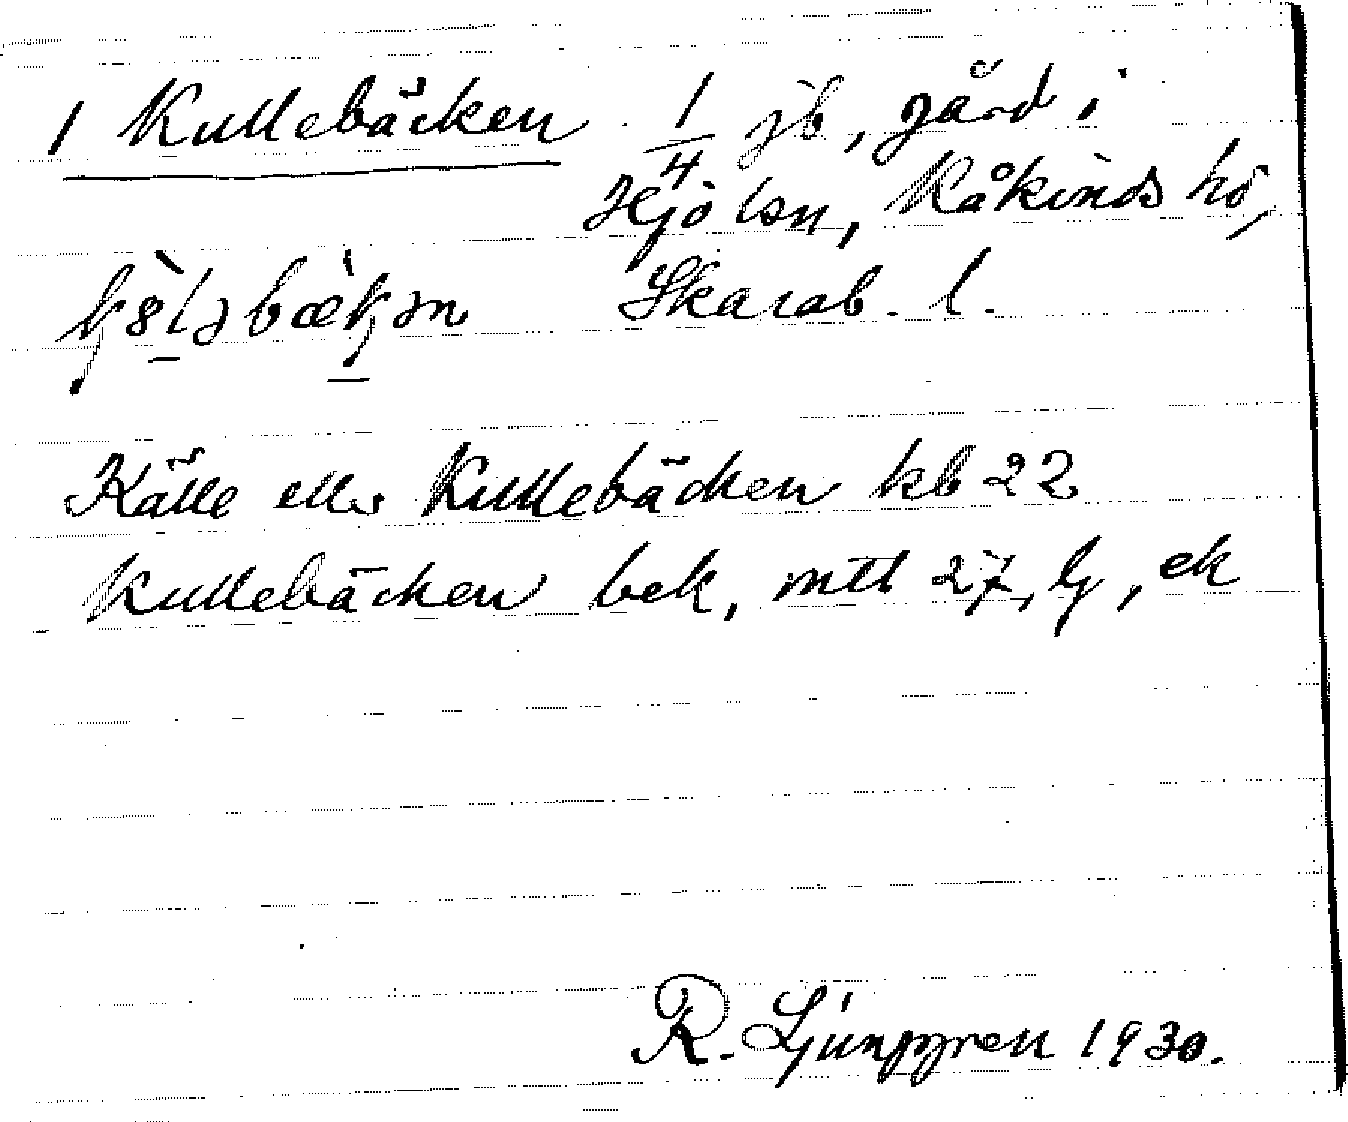 1 Kullebäcken 1/4 jb, gård i
Hjo lsn, Kåkinds hd,
Skarab. l.
Källe eller Kullebäcken kb 22
Kullebäcken bek, mtl 27, lj, ek
R. Ljunggren 1930.